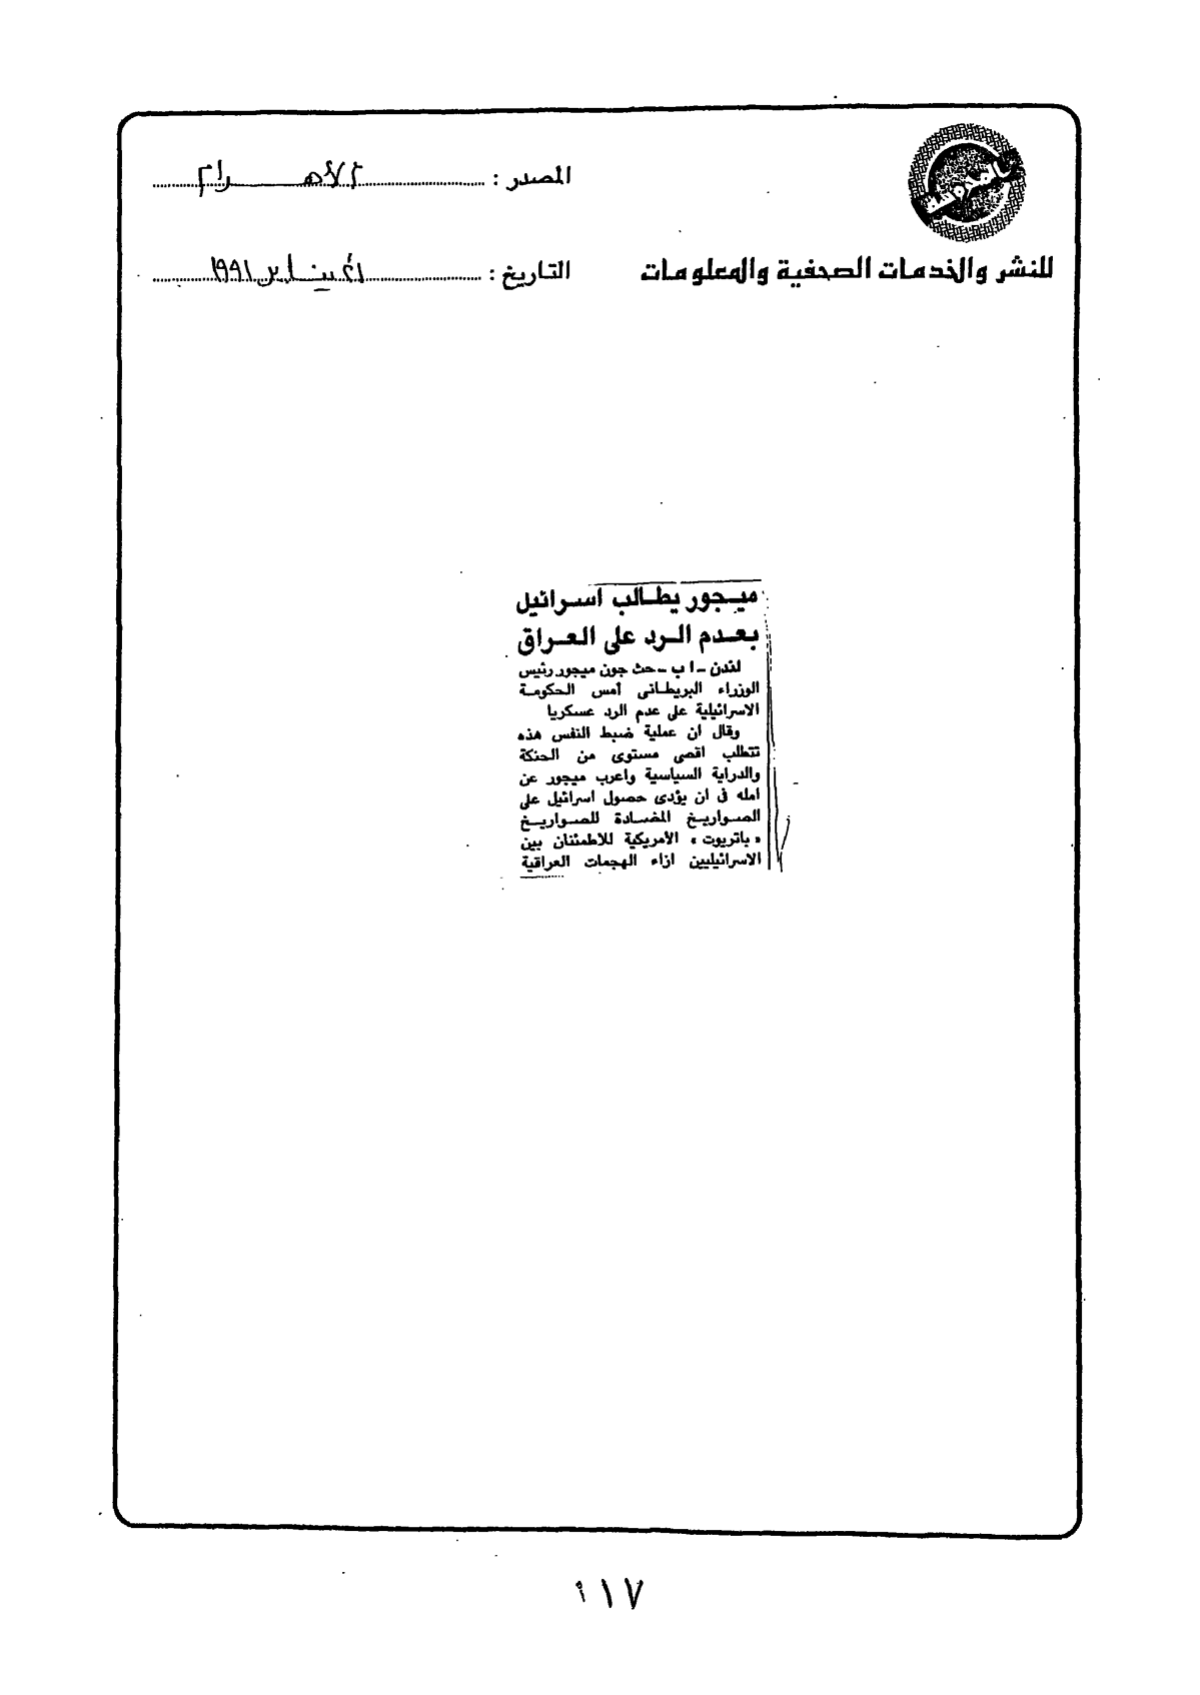 المصدر : الأهـــرام
للنشر والخدمات الصحفية والمعلومات
التاريخ : يناير ١٩٩١
ميـجور يطـالب اسـرائيل
بعـدم الـرد على العـراق
لندن - ا ب - حث جون ميجور رئيس
الوزراء البريطانى أمس الحكومة
الاسرائيلية على عدم الرد عسكريا
وقال ان عملية ضبط النفس هذه
تتطلب اقصى مستوى من الحنكة
والدراية السياسية واعرب ميجور عن
امله فى ان يؤدى حصول اسرائيل على
الصـواريـخ المضـادة للصـواريـخ
« باتريوت » الأمريكية للاطمئنان بين
الاسرائيليين ازاء الهجمات العراقية